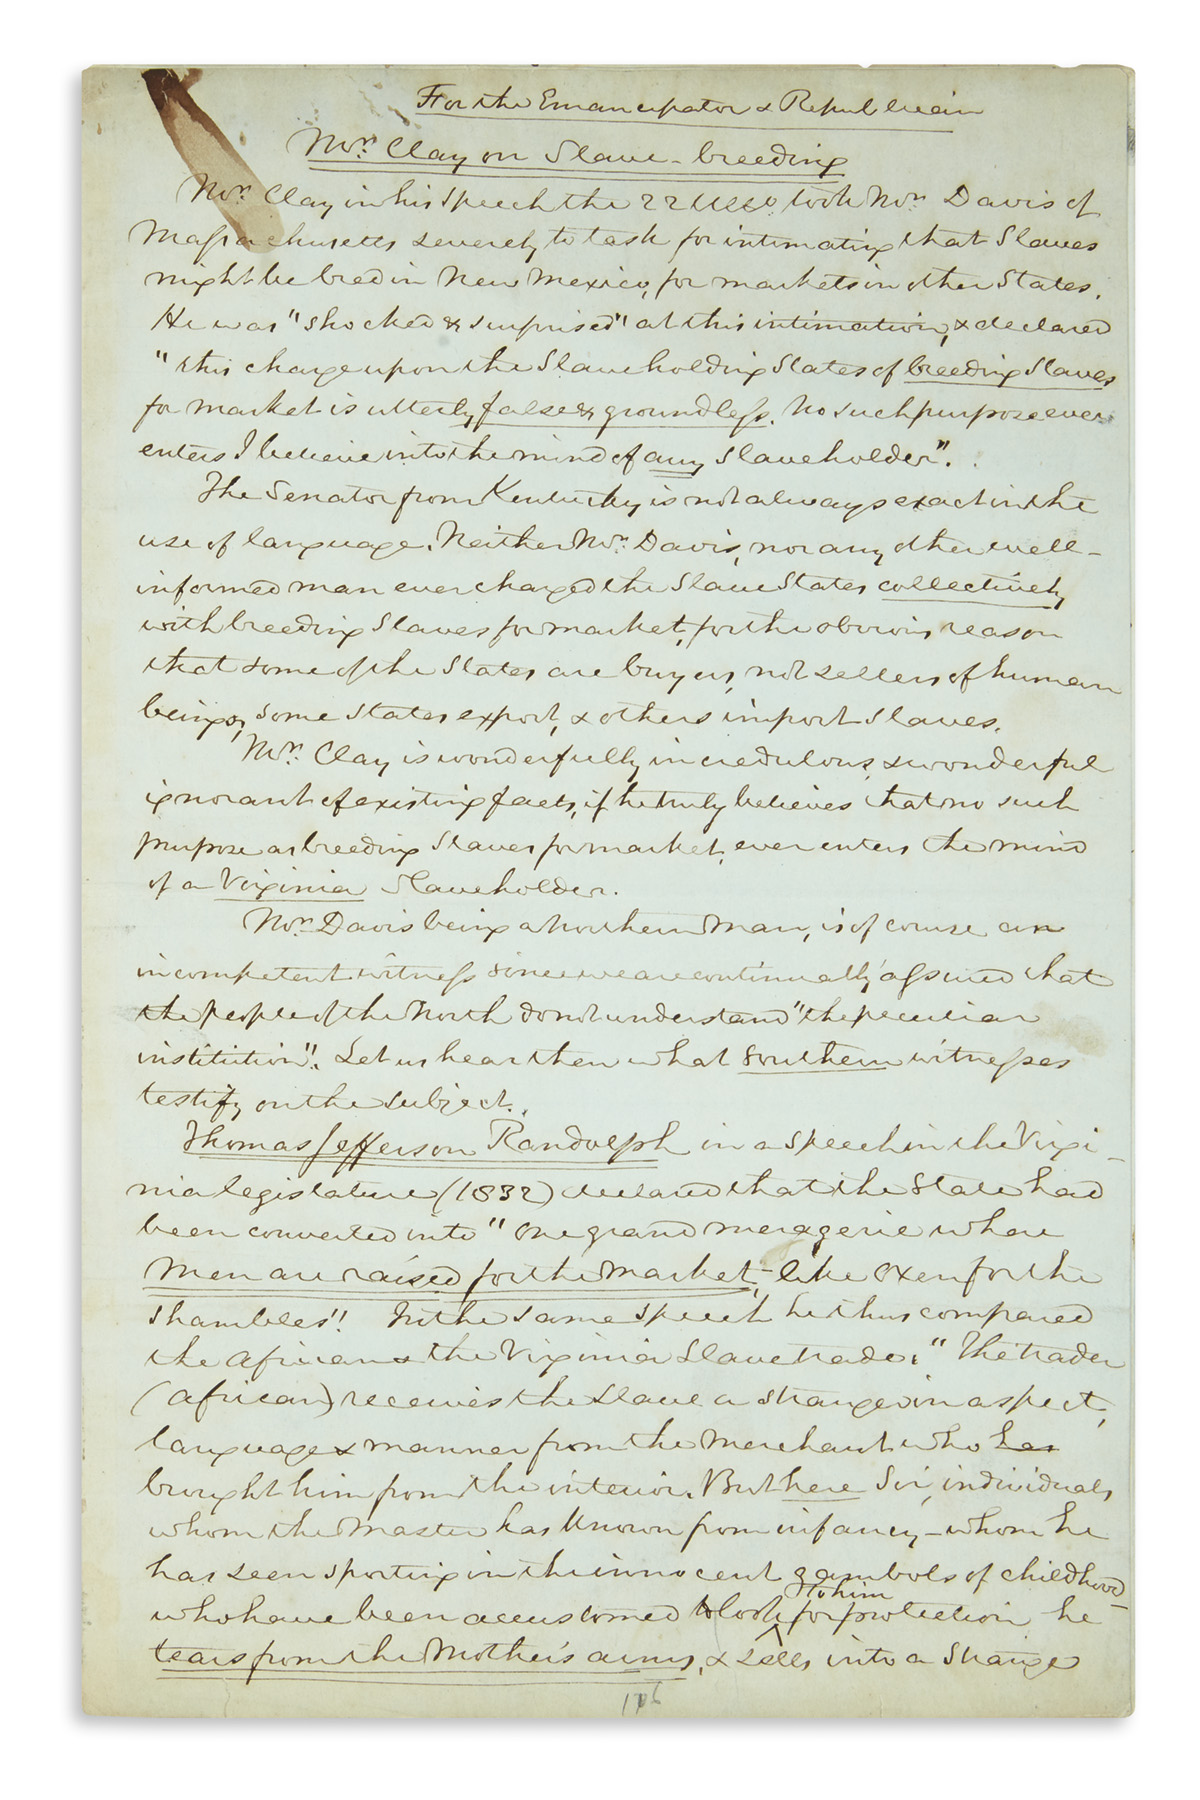 For the Emancipator & Republican
Mr. Clay on Slave-breeding
Mr. Clay in his speech the 22 took Mr. Davis of
Massachusetts severely to task for intimating that Slaves
might be bred in New Mexico, for markets in other States.
He was "shocked & surprised" at this intimation, & declared
"this charge upon the Slaveholding States of breeding Slaves
for market is utterly false & groundless. No such purpose ever
enters I believe into the mind of any Slaveholder".
The Senator from Kentucky is not always exact in the
use of language. Neither Mr. Davis, nor any other well-
informed man ever charged the Slave States collectively
with breeding Slaves for market, for the obvious reason
that some of the States are buyers, not sellers of human
beings, some States export, & others import Slaves.
Mr. Clay is wonderfully incredulous, & wonderful
ignorant of existing facts, if he truly believes that no such
purpose as breeding Slaves for market, ever enters the mind
of a Virginia Slaveholder.
Mr. Davis being a Northern Man, is of course an
incompetent witness since we are continually assured that
the people of the North do not understand "the peculiar
institution". Let us hear then what Southern witnesses
testify on the subject.
Thomas Jefferson Randolph in a speech in the Virgi-
nia legislature (1832) declared that the State had
been converted into "one grand menagerie where
Men are raised for the Market, - like oxen for the
shambles"! In the same speech he thus compared
the African & the Virginia Slave trade: "The trader
(African) receives the Slave a stranger in aspect,
language & manner from the Merchant who has
brought him from the interior. But here Sir, individuals
whom the Master has known from infancy - whom he
has seen sporting in the innocent gambols of childhood -
who have been accustomed to look to him for protection he
tears from the Mother's arms, & sells into a Strange
176